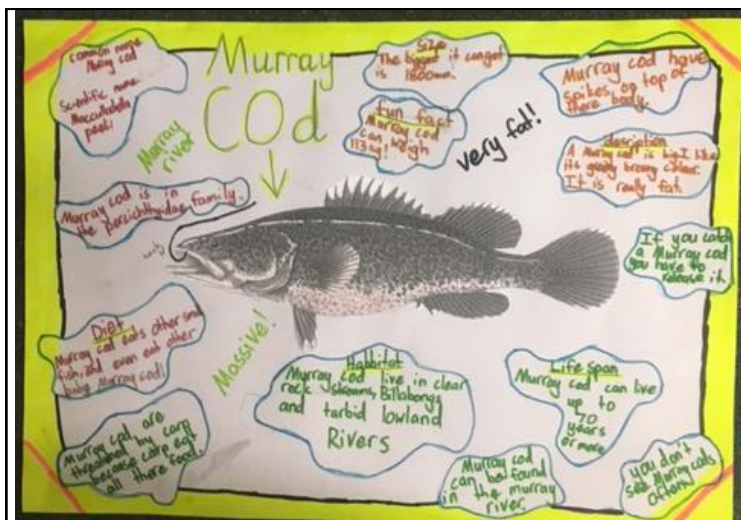 common name
Murray cod
Scientific name
Maccullochella
peeli
Murray
COd
Size
The biggest it can get
is 1800mm.
fun fact
Murray cod
can weigh
113kg!
very fat!
Murray cod have
spikes on top of
there body.
discription
A Murray cod is big. I like
its greeny browny colour.
It is really fat.
Murray
river
Murray cod is in
the percichthyidae family.
If you catch
a Murray cod
you have to
release it.
Diet
Murray cod eats other small
fish, and even eat other
baby Murray cod!
Massive!
Habbitat
Murray cod live in clear
rock streams, Billabongs
and turbid lowland
Rivers
Life span
Murray cod can live
up to
70
years
or more
Murray cod are
threatened by carp
because carp eat
all there food.
Murray cod
can be found
in the murray
river.
you don't
see Murray cods
often